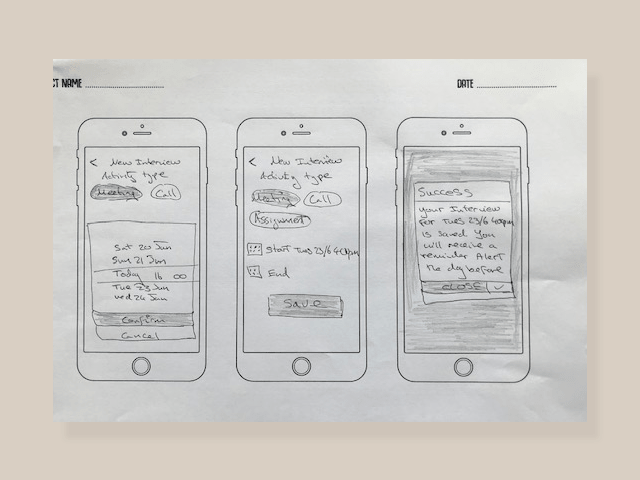 CT NAME
DATE
New Interview
Activity type
Meeting Call
Sat 20 Jun
Sun 21 Jun
Today 16 00
Tue 23 Jun
wed 24 Jun
Confirm
Cancel
New Interview
Activity type
Meeting Call
Assignment
Start Tues 23/6 4:00pm
End
Save
Success
your Interview
for Tues 23/6 4:00pm
is saved You
will receive a
reminder Alert
the day before
CLOSE